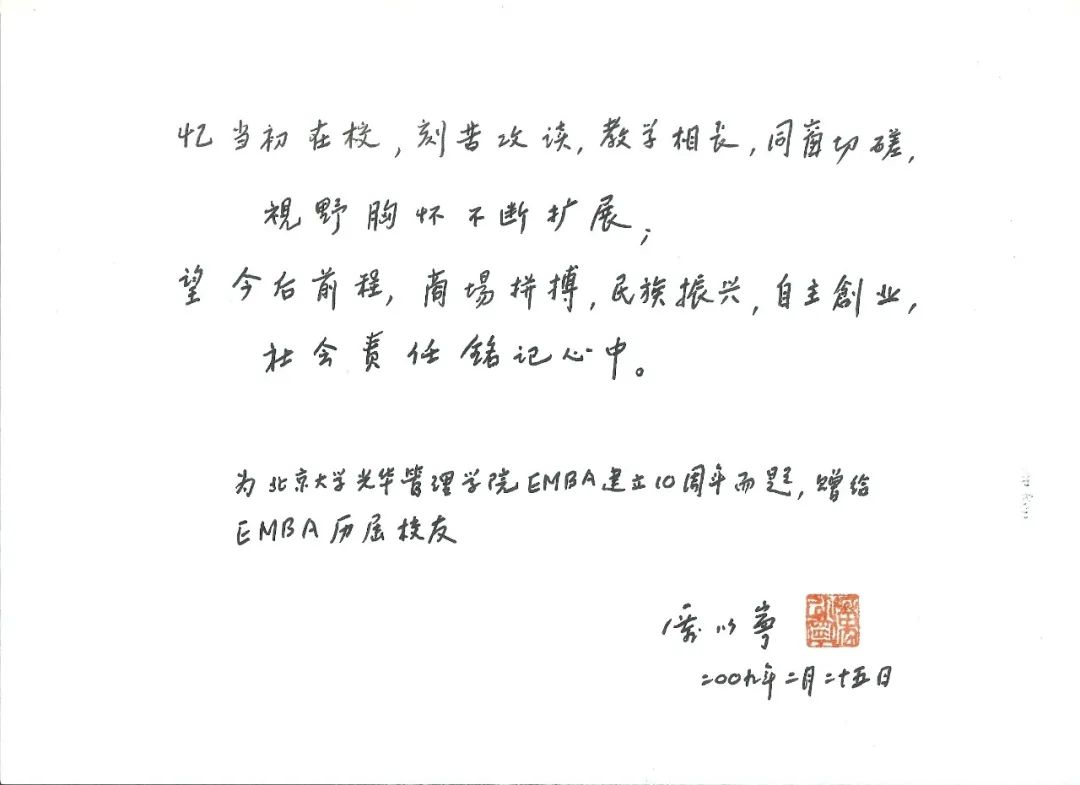 忆当初在校,刻苦攻读,教学相长,同窗切磋,
視野胸怀不断扩展;
望今后前程,商場拼搏,民族振兴,自主創业,
社会责任铭记心中。
为北京大学光华管理学院EMBA建立10周年而题,赠给
EMBA历届校友
厉以寧
二00九年二月二十五日